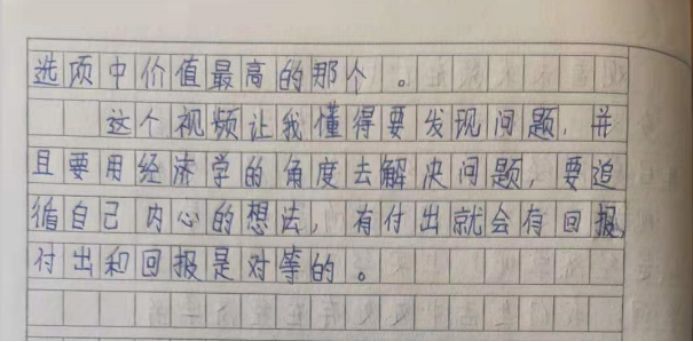 选项中价值最高的那个。
这个视频让我懂得要发现问题，并
且要用经济学的角度去解决问题，要追
循自己内心的想法，有付出就会有回报，
付出和回报是对等的。